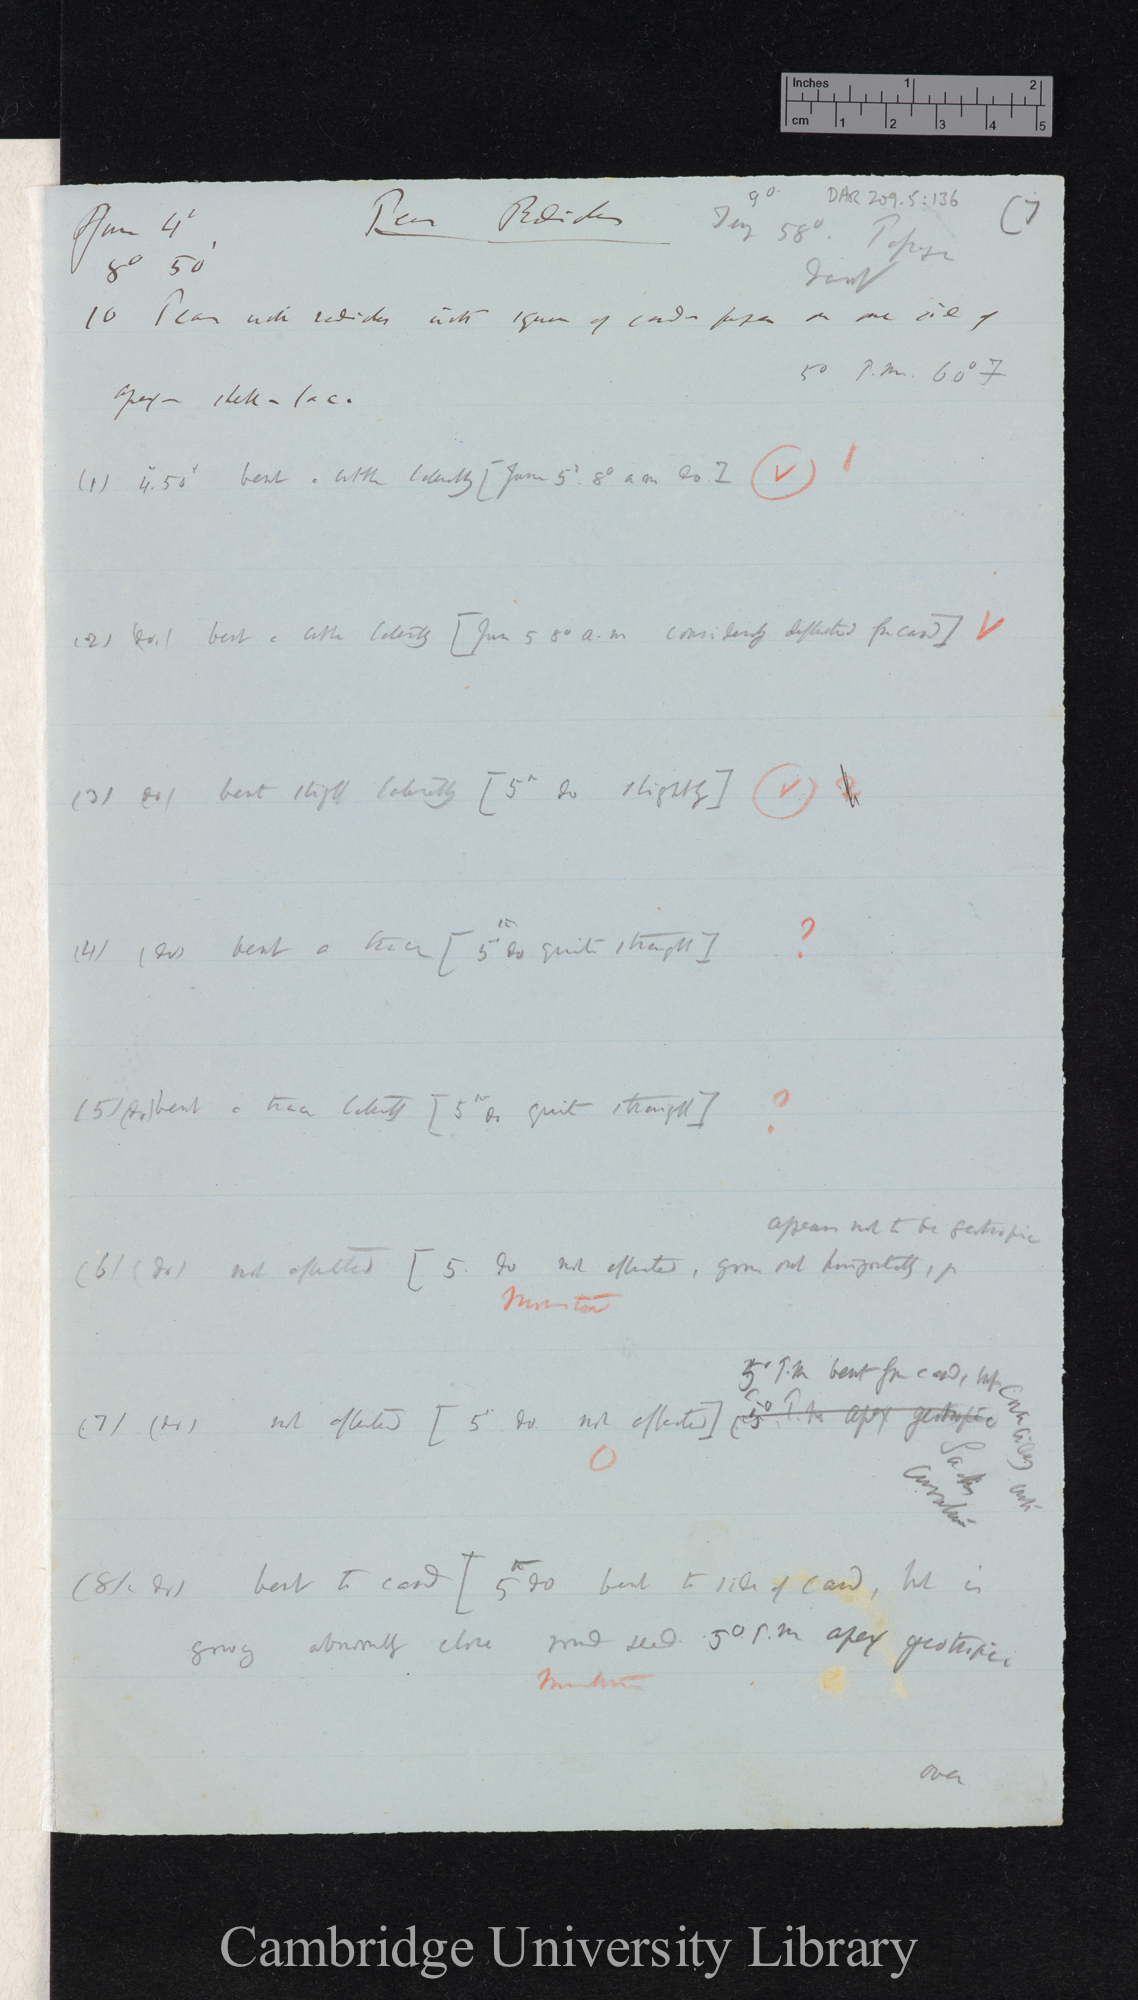 Inches 1 2
cm 1 2 3 4 5
DAR 209.5:136
June 4'
8° 50'
Peas Radicles
9°
Temp 58°.
(7)
10 Peas with radicles with square of card-paper on one side of
5° P.M. 60° F
apex — shell-lac.
(1) 4.50' bent a little laterally [June 5' 8° a m do.] V 1
(2) (do.) bent a little laterally [June 5 8° a.m considerably deflected from card] V
(3) (do) bent slightly laterally [5th do slightly] V
(4) (do) bent a trace [5th do quite straight] ?
(5) (do) bent a trace laterally [5th do quite straight] ?
appears not to be geotropic
(6) (do) not affected [5. do not affected, grown out horizontally,
5° P.m bent from card, but
(7) (do) not affected [5 do not affected] (5° P.m apex geotropic
0
Coinciding with
Sachs
Curvature
(8) (do) bent to card [5th do bent to side of card, but is
growing abnormally close round seed. 5° P.m apex geotropic
over
Cambridge University Library